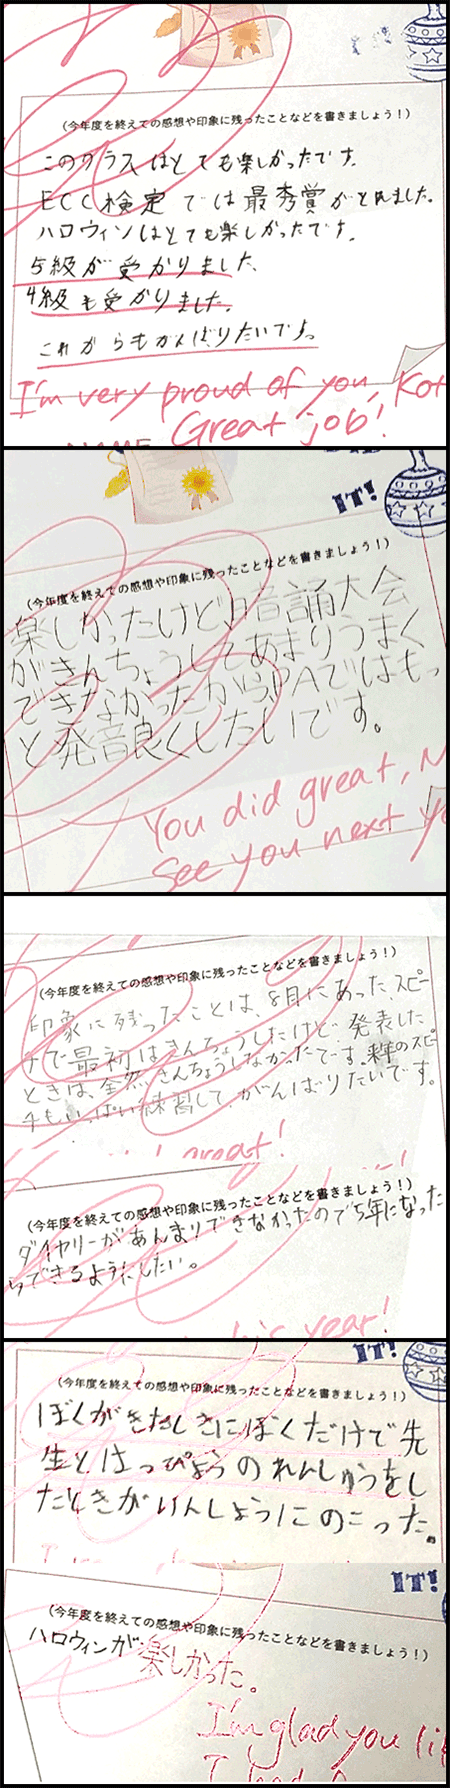 (今年度を終えての感想や印象に残ったことなどを書きましょう!)
このクラスはとても楽しかったです。
ECC検定では最秀賞がとれました。
ハロウィンはとても楽しかったです。
5級が受かりました。
4級も受かりました。
これからもがんばりたいです。
I'm very proud of you, Kot
NAME Great job!
IT!
(今年度を終えての感想や印象に残ったことなどを書きましょう!)
楽しかったけど、暗誦大会
がきんちょうしてあまりうまく
できなかったから、PAではもっ
と発音良くしたいです。
You did great, N
See you next ye
(今年度を終えての感想や印象に残ったことなどを書きましょう!)
印象に残ったことは、8月にあった、スピー
チで最初はきんちょうしたけど発表した
ときは、全然きんちょうしなかったです。来年のスピー
チもいっぱい練習して、がんばりたいです。
great!
(今年度を終えての感想や印象に残ったことなどを書きましょう!)
ダイヤリーがあんまりできなかったので5年になった
らできるようにしたい。
this year!
IT!
(今年度を終えての感想や印象に残ったことなどを書きましょう!)
ぼくがきたときにぼくだけで先
生とはっぴょうのれんしゅうをし
たときがいんしょうにのこった。
IT!
(今年度を終えての感想や印象に残ったことなどを書きましょう!)
ハロウィンが楽しかった。
I'm glad you li